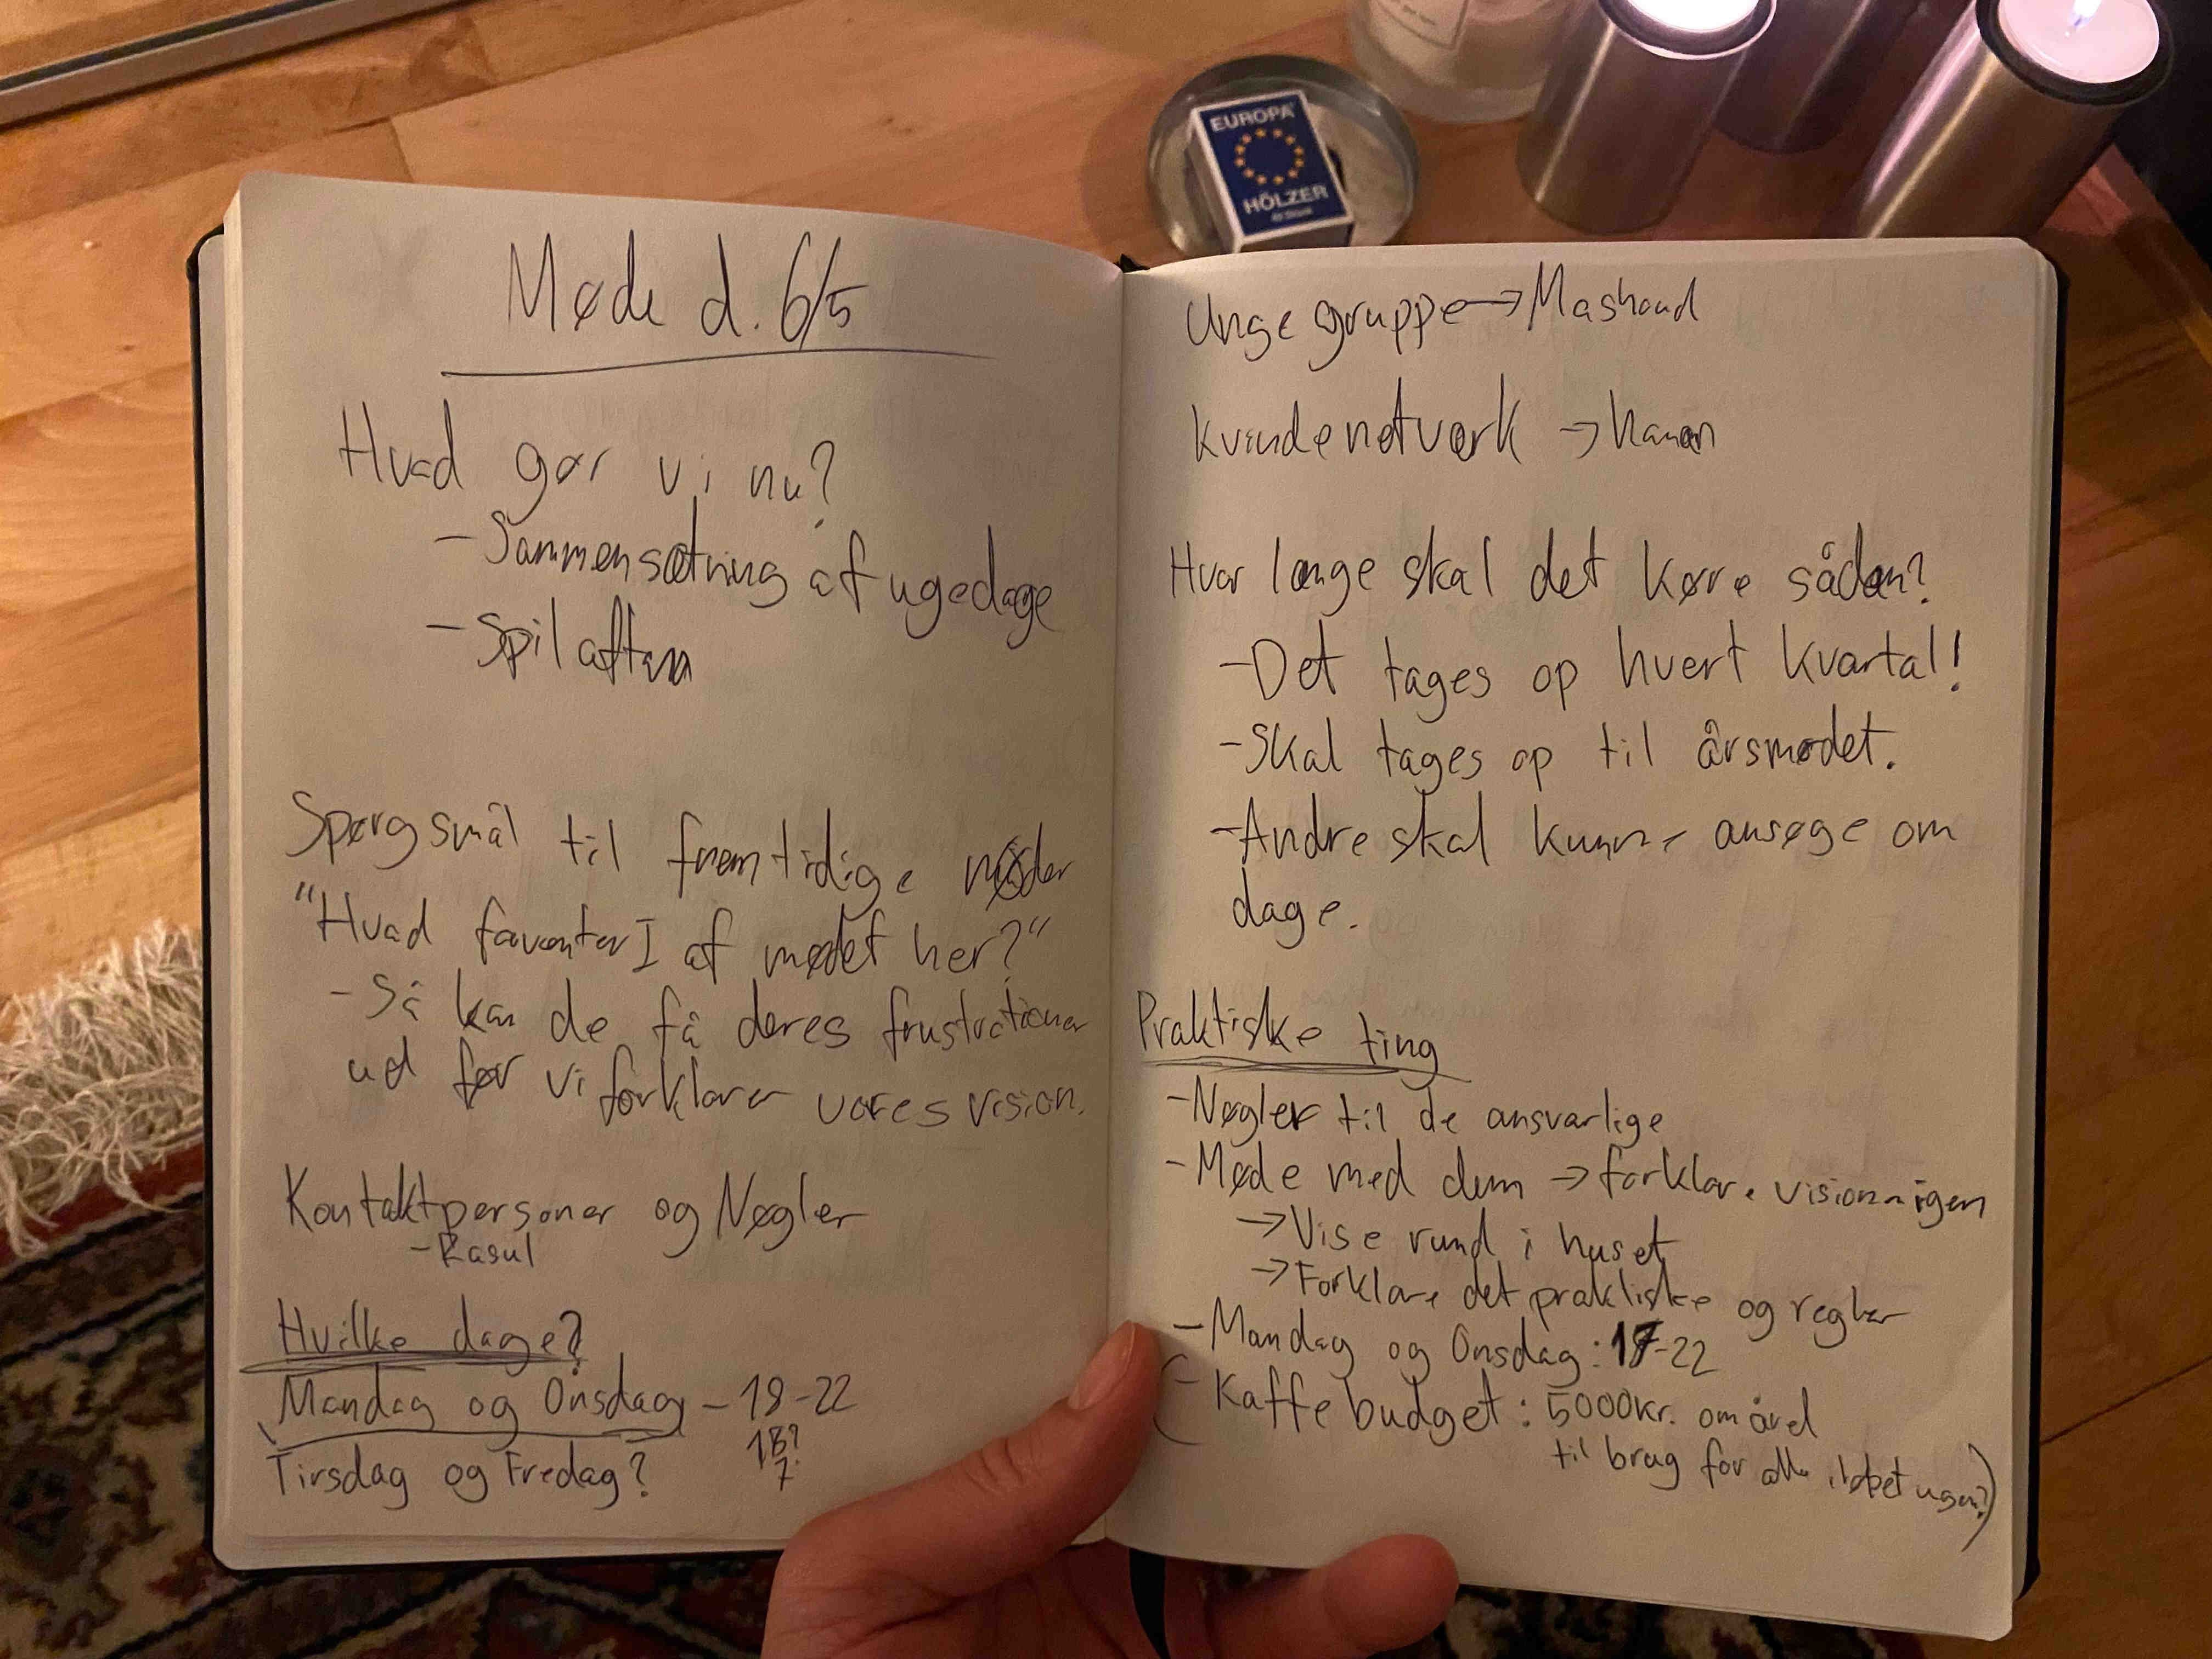 EUROPA
HÖLZER
Møde d. 6/5
Hvad gør vi nu?
- Sammensætning af ugedage
- Spilaften
Spørgsmål til fremtidige møder
"Hvad forventer I af mødet her?"
- Så kan de få deres frustrationer
ud før vi forklarer vores vision.
Kontaktpersoner og Nøgler
- Rasul
Hvilke dage?
Mandag og Onsdag - 18-22
Tirsdag og Fredag?
Unge gruppe → Mashoud
Kvindenetværk → Hanan
Hvor længe skal det køre sådan?
- Det tages op hvert kvartal!
- Skal tages op til årsmødet.
- Andre skal kunne ansøge om
dage.
Praktiske ting
- Nøgler til de ansvarlige
- Møde med dem → forklare visionen igen
→ Vise rund i huset
→ Forklare det praktiske og regler
- Mandag og Onsdag: 17-22
(- Kaffebudget: 5000kr. om året
til brug for alle i løbet ugen?)